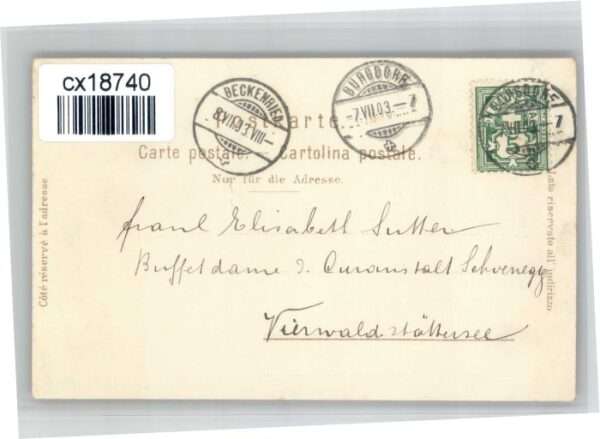 cx18740
BECKENRIED
8.VII.03.VIII—
BURGDORF
-7.VII.03.—7
BURGDORF
—7
5
Carte postale. Cartolina postale.
Nur für die Adresse.
Côté réservé à l'adresse
Lato riservato all'indirizzo
Fräul Elisabeth Sutter
Buffetdame z. Curanstalt Schoenegg
Vierwaldstättersee